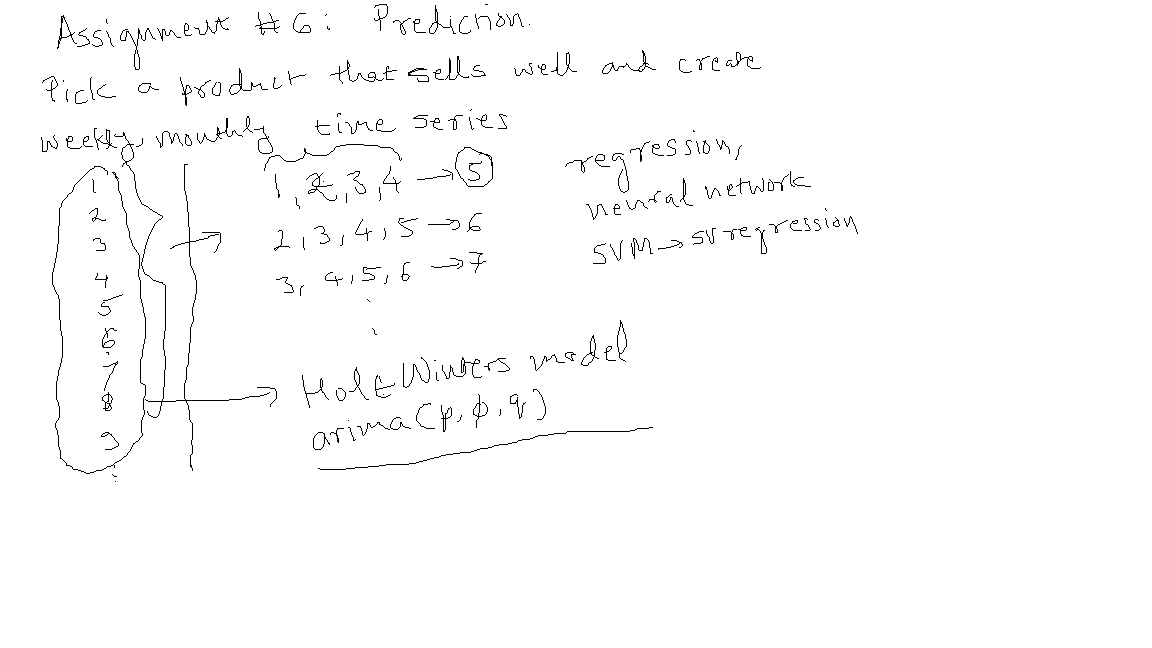 Assignment # 6: Prediction.
Pick a product that sells well and create
weekly, monthly time series
1
2
3
4
5
6
7
8
9
1, 2, 3, 4 → 5
2, 3, 4, 5 → 6
3, 4, 5, 6 → 7
regression,
neural network
SVM → SV regression
Holt Winters model
arima(p, φ, q)